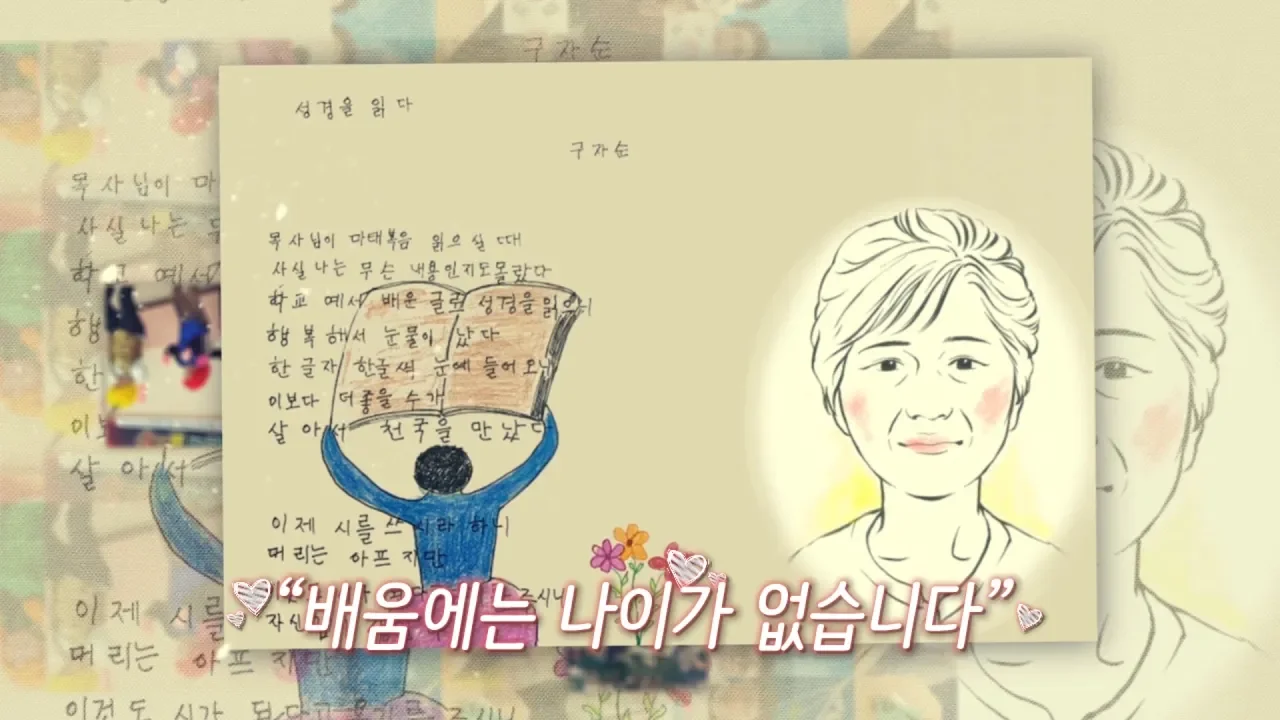 성경을 읽다
구자순
목사님이 마태복음 읽으실 때
사실 나는 무슨 내용인지도 몰랐다
학교 에서 배운 글로 성경을 읽으니
행복해서 눈물이 났다
한글자 한글씩 눈에 들어오니
이보다 더 좋을 수가
살아서 천국을 만났다
이제 시를 쓰시라 하니
머리는 아프지만
주시니
자신
“배움에는 나이가 없습니다”